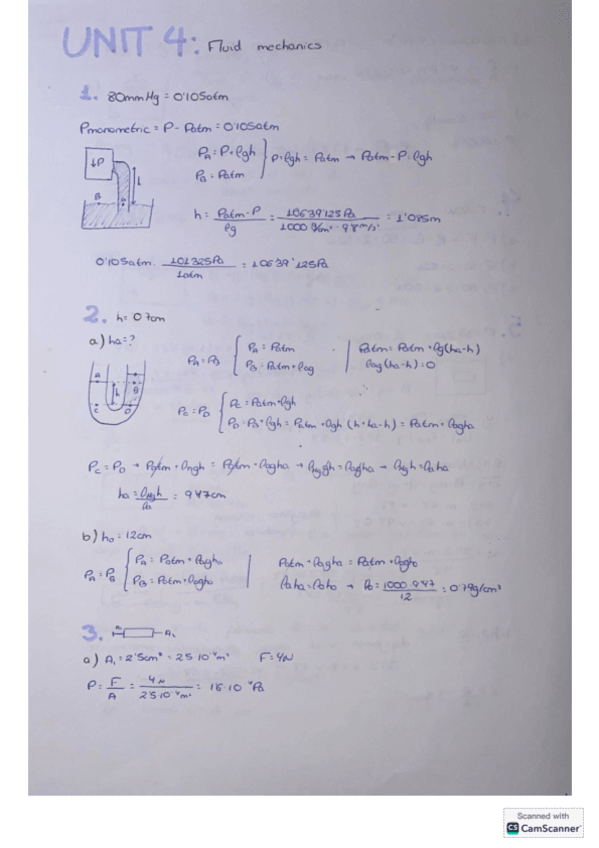 UNIT 4: Fluid mechanics
1. 80mmHg = 0'105atm
Pmanometric = P - Patm = 0'105atm
PA = P + ρgh
PB = Patm
P + ρgh = Patm → Patm - P = ρgh
↓P
h
B
A
h = Patm - P / ρg = 10639'125Pa / 1000 kg/m³ · 9'8m/s² = 1'085m
0'105atm · 101325Pa / 1atm = 10639'125Pa
2. h = 0'7cm
a) ha = ?
PA = PB
PA = Patm
Patm = Patm + ρg(ha-h)
ρag(ha-h) = 0
A
B
h
C
D
PC = PD
PC = Patm + ρgh
PD = PB + ρgh = Patm + ρgh (h + ha - h) = Patm + ρagha
PC = PD → Patm + ρHgh = Patm + ρagha → ρHggh = ρagha → ρHgh = ρaha
ha = ρHgh / ρa = 9'47cm
b) ho = 12cm
PA = PB
PB = Patm + ρogho
Patm + ρagha = Patm + ρogho
ρaha = ρoho → ρo = 1000 · 9'47 / 12 = 0'79g/cm³
3.
A1
a) A1 = 2'5cm² = 2'5·10⁻⁴m² F = 4N
P = F / A = 4N / 2'5·10⁻⁴m² = 1'6·10⁴Pa
Scanned with
CS CamScanner